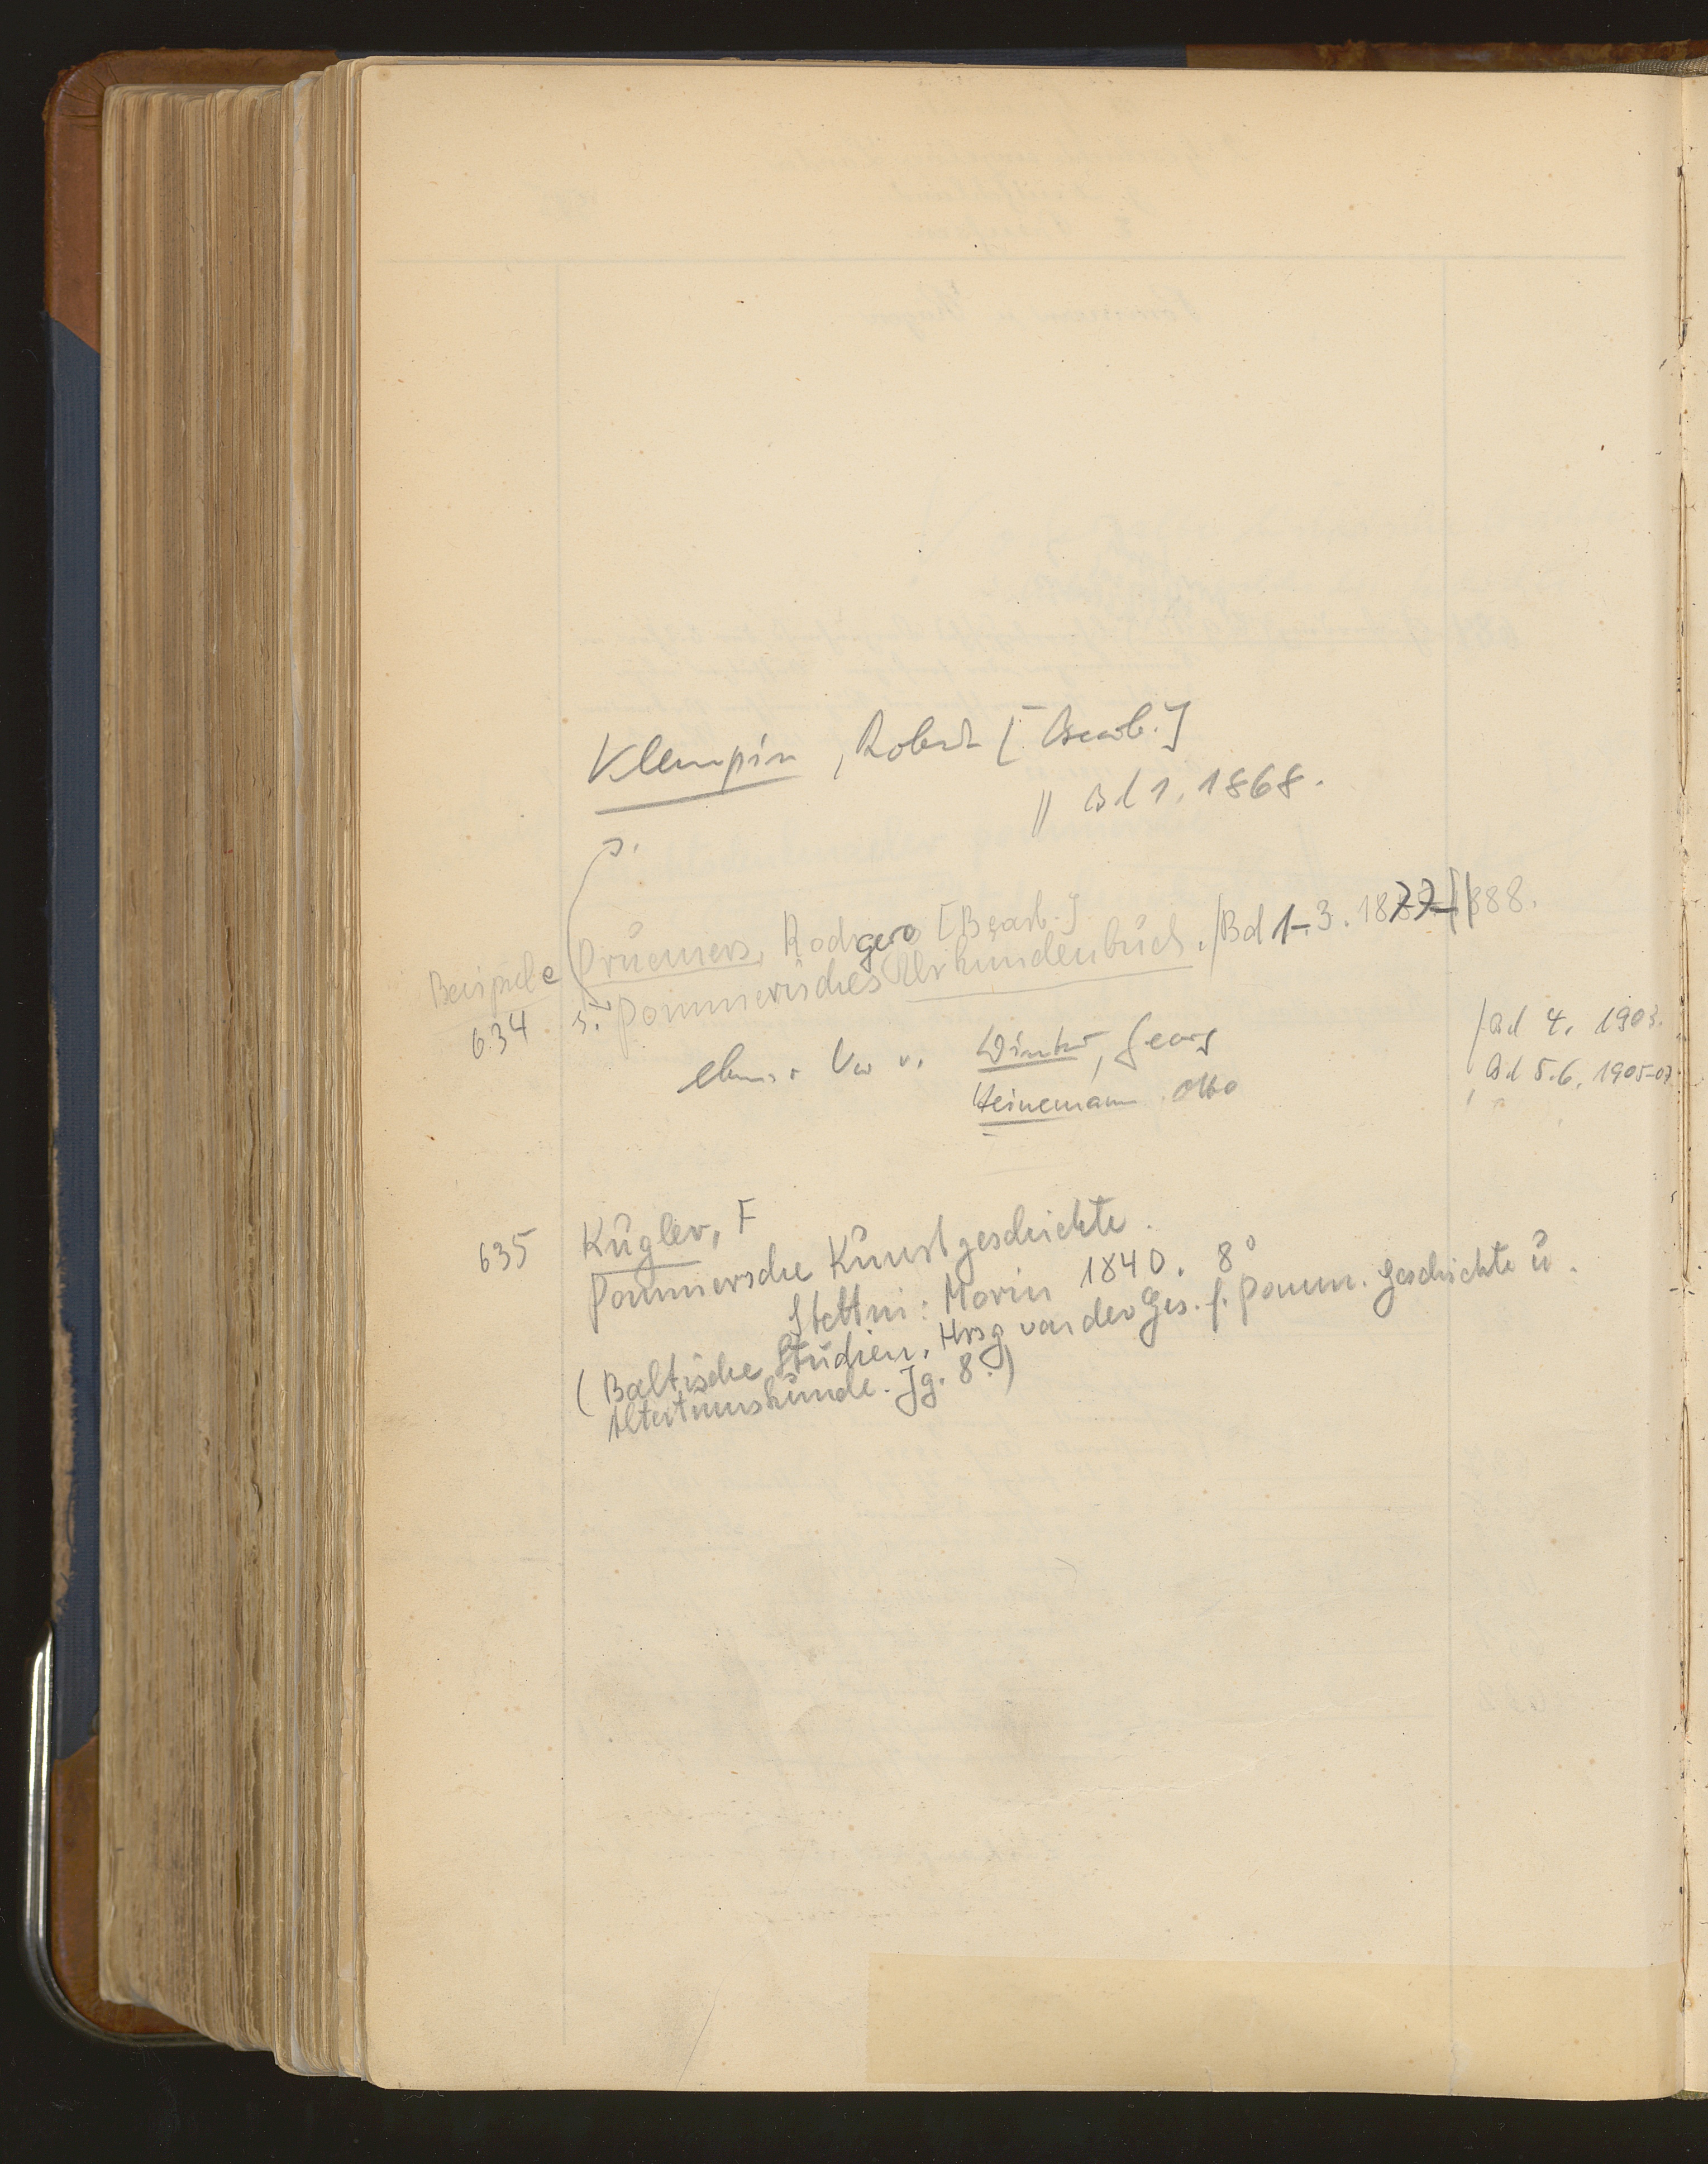 Klempin, Robert [Bearb.]
// Bd 1. 1868.
s.
Prümers, Rodgero [Bearb.]
Beispiele
634 s. Pommerisches Urkundenbuch. /Bd 1-3. 1877-1888.
ebenso Vw v. Winter, Georg /Bd 4. 1903.
Heinemann, Otto /Bd 5.6. 1905-07.
635 Kugler, F
Pommersche Kunstgeschichte.
Stettin: Morin 1840. 8°
(Baltische Studien. Hrsg von der Ges. f. pomm. Geschichte u.
Altertumskunde. Jg. 8.)